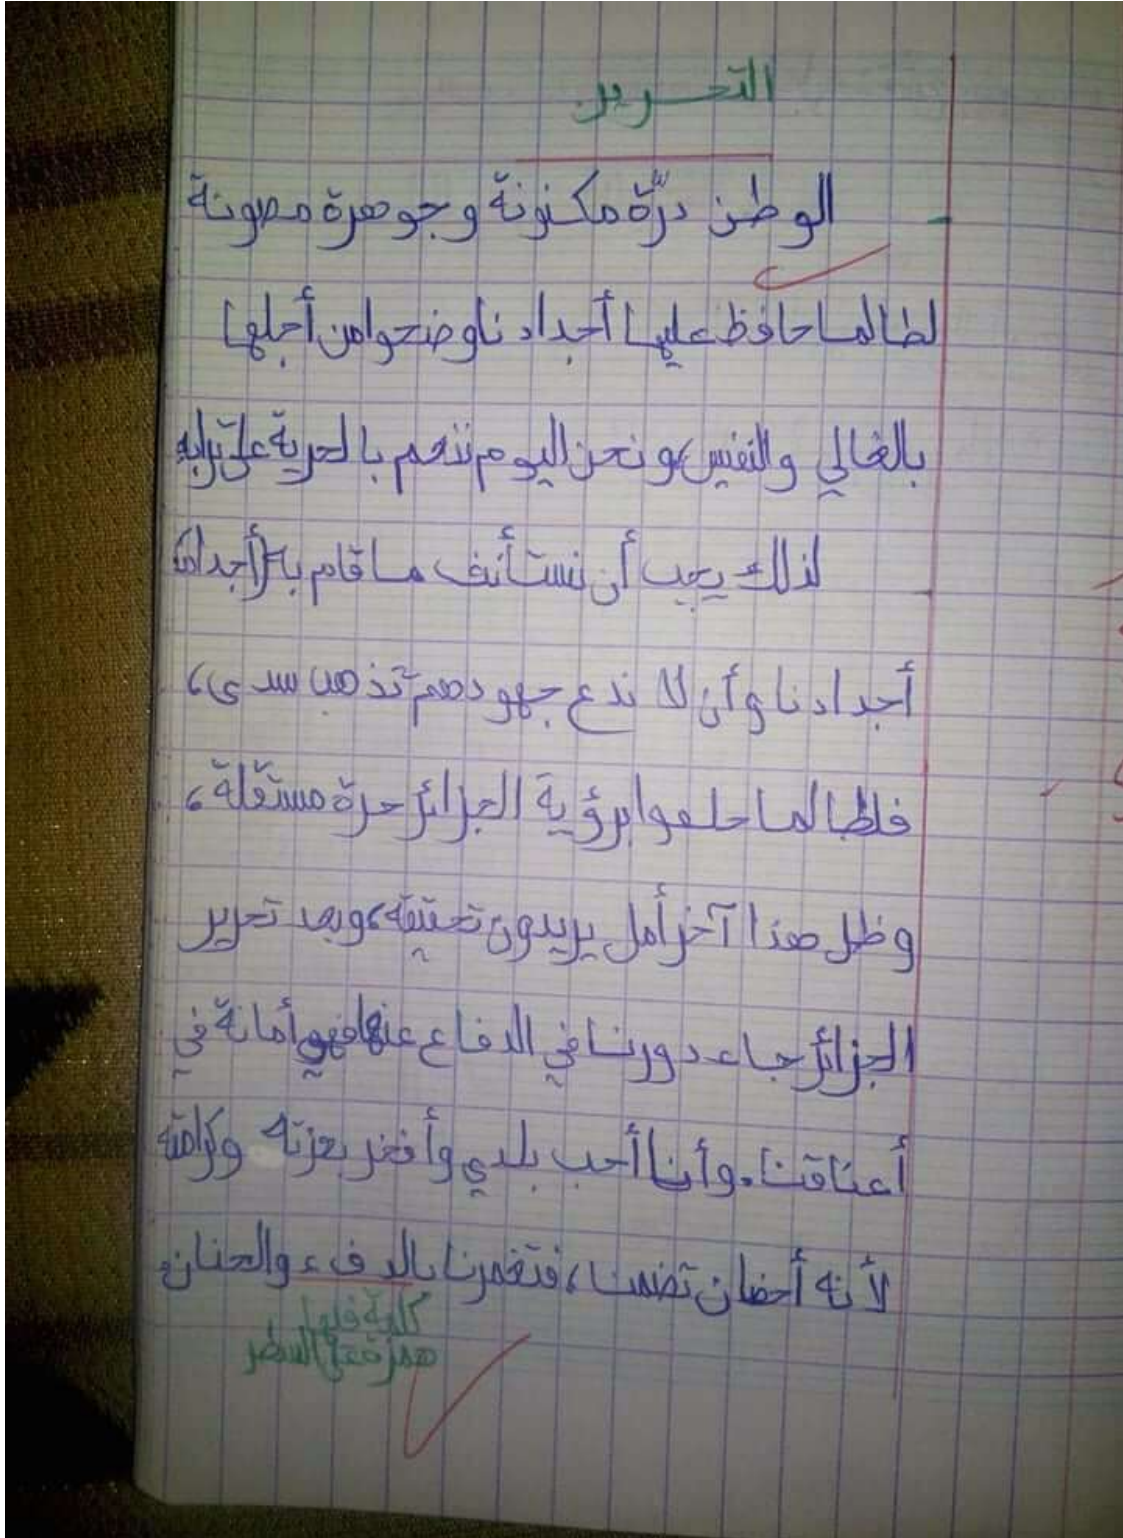 التحرير
- الوطن درّة مكنونة وجوهرة مصونة
لطالما حافظ عليها أجدادنا وضحوا من أجلها
بالغالي والنفيس، ونحن اليوم ننعم بالحرية على ترابه
لذلك يجب أن نستأنف ما قام به (أجدادنا)
أجدادنا وأن لا ندع جهودهم تذهب سدى،
فلطالما حلموا برؤية الجزائر حرة مستقلة،
وظل هذا آخر أمل يريدون تحقيقه، وبعد تحرير
الجزائر جاء دورنا في الدفاع عنها فهي أمانة في
أعناقنا. وأنا أحب بلدي وأفخر بعزته وكرامته
لأنه أحضان تضمنا، فتغمرنا بالدفء والحنان.
كلمة فيها
همزة على السطر